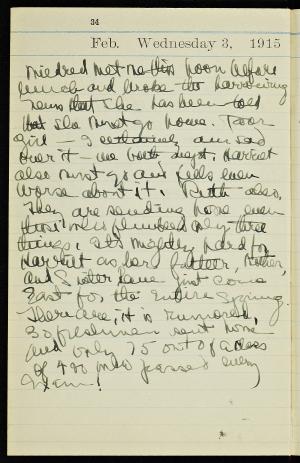 34
Feb. Wednesday 3, 1915
Mildred met me this noon before
lunch and broke the harrowing
news that she has been told
that she must go home. Poor
girl - I certainly am sad
over it - we both are. Harriet
also must go and feels even
worse about it. Ruth also.
They are sending home even
those who flunked only three
things. It's mighty hard for
Harriet as her father, mother,
and sister have just come
East for the entire spring.
There are, it is rumored,
30 freshmen sent home
and only 75 out of a class
of 490 who passed every
exam!